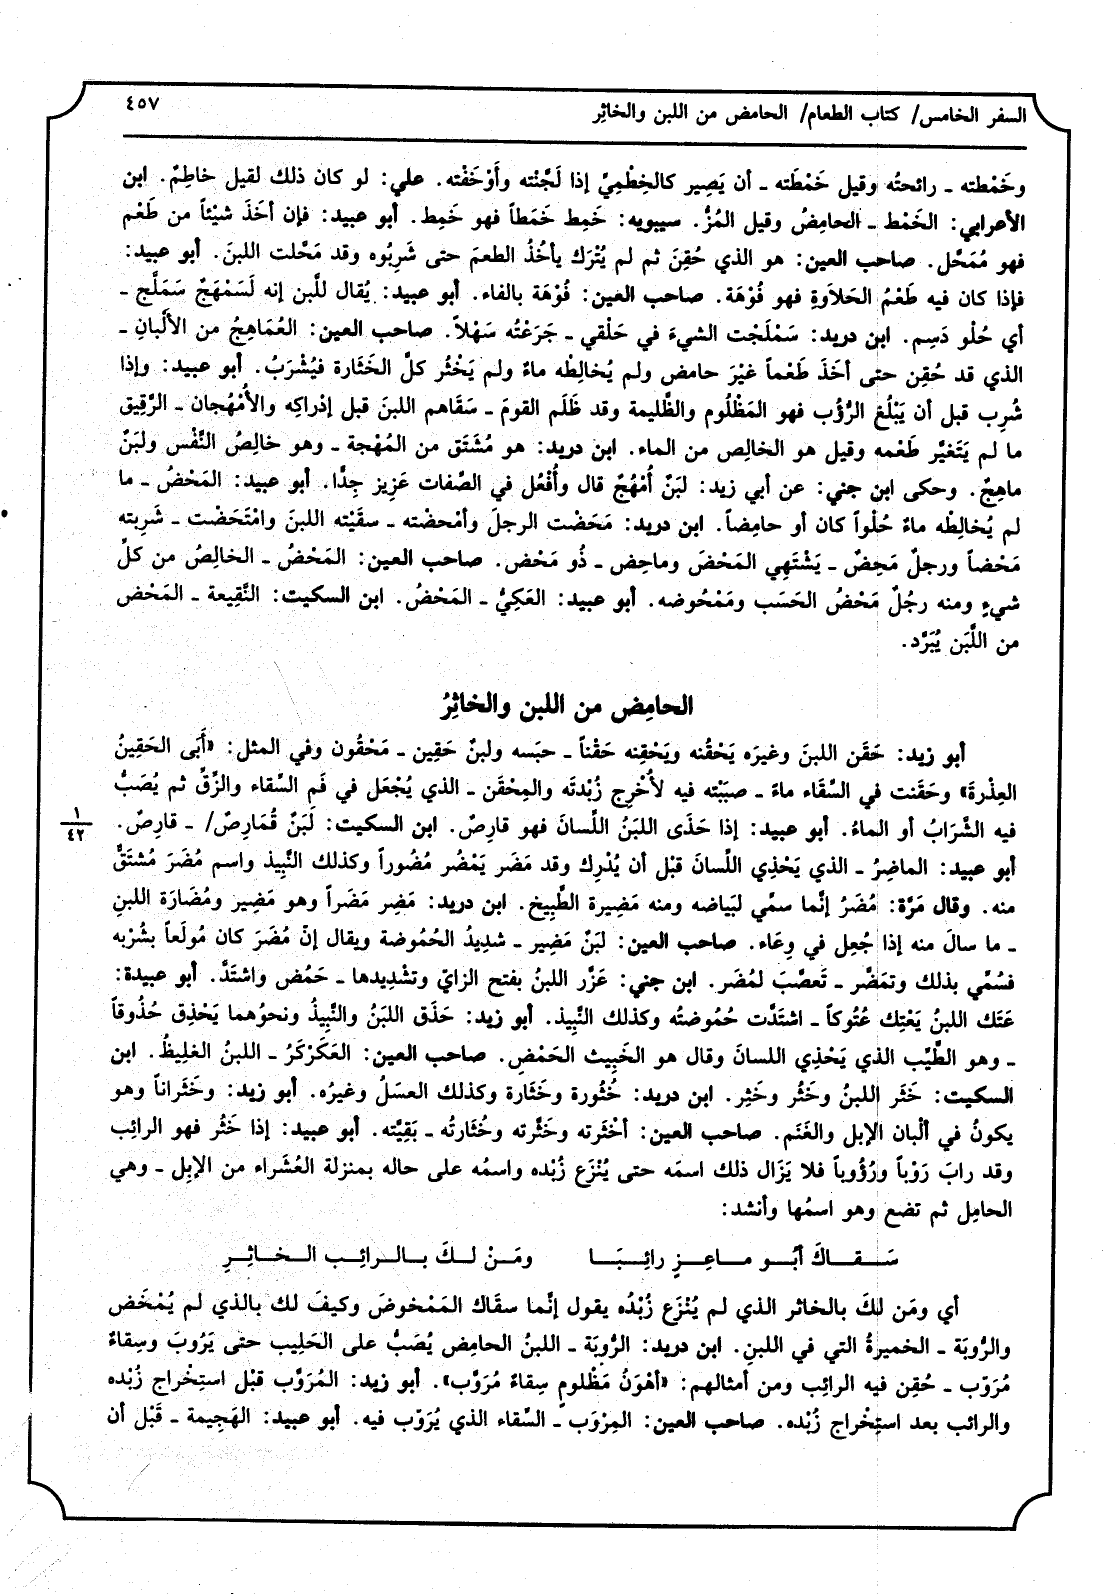 السفر الخامس/ كتاب الطعام/ الحامض من اللبن والخاثِر
٤٥٧
وخَمْطته ـ رائحتُه وقيل خَمْطَته ـ أن يَصِير كالخِطْمِيِّ إذا لَجَّنْته وأَوْخَفْته. علي: لو كان ذلك لقيل خاطِمٌ. ابن
الأعرابي: الخَمْط ـ الحامِضُ وقيل المُزُّ. سيبويه: خَمِط خَمَطاً فهو خَمِط. أبو عبيد: فإن أخَذَ شيْئاً من طَعْم
فهو مُمَحَّل. صاحب العين: هو الذي حُقِنَ ثم لم يُتْرَك يأخُذُ الطعمَ حتى شَرِبُوه وقد مَحَّلت اللبنَ. أبو عبيد:
فإذا كان فيه طَعْمُ الحَلاوَةِ فهو قُوْهَة. صاحب العين: فُوْهَة بالفاء. أبو عبيد: يُقال للَّبن إنه لَسَمْهَجٌ سَمَلَّج ـ
أي حُلْو دَسِم. ابن دريد: سَمْلَجْت الشيءَ في حَلْقي ـ جَرَعْتُه سَهْلاً. صاحب العين: العُمَاهِجُ من الأَلْبانِ ـ
الذي قد حُقِن حتى أخَذَ طَعْماً غيْرَ حامض ولم يُخالِطْه ماءٌ ولم يَخْثُر كلَّ الخَثَارة فيُشْرَبُ. أبو عبيد: وإذا
شُرِب قبل أن يَبْلُغ الرُّؤُب فهو المَظْلُوم والظَّليمة وقد ظَلَم القومَ ـ سَقَاهم اللبنَ قبل إدْراكِه والأُمْهُجان ـ الرَّقِيق
ما لم يَتَغيَّر طَعْمه وقيل هو الخالِص من الماء. ابن دريد: هو مُشتَق من المُهْجة ـ وهو خالِصُ النَّفْس ولبَنٌ
ماهِجٌ. وحكى ابن جني: عن أبي زيد: لبَنٌ أُمْهُجٌ قال وأُفْعُل في الصِّفات عَزِيز جِدًّا. أبو عبيد: المَحْضُ ـ ما
لم يُخالِطْه ماءٌ حُلْواً كان أو حامِضاً. ابن دريد: مَحَضْت الرجلَ وأمْحضْته ـ سقَيْته اللبنَ وامْتَحَضْت ـ شَرِبته
مَحْضاً ورجلٌ مَحِضٌ ـ يَشْتَهِي المَحْضَ وماحِض ـ ذُو مَحْض. صاحب العين: المَحْضُ ـ الخالِصُ من كلِّ
شيءٍ ومنه رجُلٌ مَحْضُ الحَسَب ومَمْحُوضه. أبو عبيد: العَكِيُّ ـ المَحْضُ. ابن السكيت: النَّقِيعة ـ المَحْض
من اللَّبَن يُبَرَّد.
الحامِض من اللبن والخاثِرُ
أبو زيد: حَقَن اللبنَ وغيرَه يَحْقُنه ويَحْقِنه حَقْناً ـ حبَسه ولبنٌ حَقِين ـ مَحْقُون وفي المثل: «أَبَى الحَقِينُ
العِذْرةَ» وحَقَنت في السِّقَاء ماءً ـ صبَبْته فيه لأُخْرِج زُبْدتَه والمِحْقَن ـ الذي يُجْعَل في فَم السِّقاء والزِّقِّ ثم يُصَبُّ
فيه الشَّرَابُ أو الماءُ. أبو عبيد: إذا حَذَى اللبَنُ اللِّسانَ فهو قارِصٌ. ابن السكيت: لَبَنٌ قُمَارِصٌ/ ـ قارِصٌ.
١
٤٢
أبو عبيد: الماضِرُ ـ الذي يَحْذِي اللِّسانَ قبْل أن يُدْرِك وقد مَضَر يَمْضُر مُضُوراً وكذلك النَّبِيذ واسم مُضَرَ مُشتَقٌّ
منه. وقال مَرّة: مُضَرُ إنَّما سمِّي لبَياضه ومنه مَضِيرة الطَّبِيخ. ابن دريد: مَضِر مَضَراً وهو مَضِير ومُضَارَة اللبنِ
ـ ما سالَ منه إذا جُعِل في وِعَاء. صاحب العين: لبَنٌ مَضِير ـ شدِيدُ الحُمُوضة ويقال إنَّ مُضَرَ كان مُولَعاً بشُرْبه
فسُمِّي بذلك وتمَضَّر ـ تَعصَّبَ لمُضَر. ابن جني: عَزَّر اللبنُ بفتح الزايِ وتشْدِيدها ـ حَمُض واشتَدَّ. أبو عبيدة:
عَتَك اللبنُ يَعْتِك عُتُوكاً ـ اشتَدَّت حُمُوضتُه وكذلك النَّبِيذ. أبو زيد: حَذَق اللبَنُ والنَّبِيذُ ونحوُهما يَحْذِق حُذُوقاً
ـ وهو الطَّيِّب الذي يَحْذِي اللسانَ وقال هو الخَبِيث الحَمْضِ. صاحب العين: العَكَرْكَرُ ـ اللبنُ الغلِيظُ. ابن
السكيت: خَثَر اللبنُ وخَثُر وخَثِر. ابن دريد: خُثُورة وخَثَارة وكذلك العسَلُ وغيرُه. أبو زيد: وخَثَراناً وهو
يكونُ في ألْبان الإبل والغَنَم. صاحب العين: أخْثَرته وخَثَّرته وخُثَارتُه ـ بَقِيَّته. أبو عبيد: إذا خَثُر فهو الرائِب
وقد رابَ رَوْباً ورُؤُوباً فلا يَزَال ذلك اسمَه حتى يُنْزَع زُبْده واسمُه على حاله بمنزلة العُشَراء من الإبِل ـ وهي
الحامِل ثم تضع وهو اسمُها وأنشد:
سَــقــاكَ أبُــو مــاعِــزٍ رائِــبَــا ومَــنْ لــكَ بــالــرائِــب الــخــاثِــرِ
أي ومَن لكَ بالخاثر الذي لم يُنْزَع زُبْدُه يقول إنَّما سقَاك المَمْخوضَ وكيفَ لك بالذي لم يُمْخَض
والرُّوبَة ـ الخميرةُ التي في اللبنِ. ابن دريد: الرُّوبَة ـ اللبنُ الحامِض يُصَبُّ على الحَلِيب حتى يَرُوبَ وسِقاءٌ
مُرَوّب ـ حُقِن فيه الرائِب ومن أمثالهم: «أهْوَنُ مَظْلومٍ سِقاءٌ مُرَوَّب». أبو زيد: المُرَوَّب قبْل استِخْراج زُبْده
والرائب بعد استِخْراج زُبْده. صاحب العين: المِرْوَب ـ السِّقاء الذي يُرَوّب فيه. أبو عبيد: الهَجِيمة ـ قَبْل أن